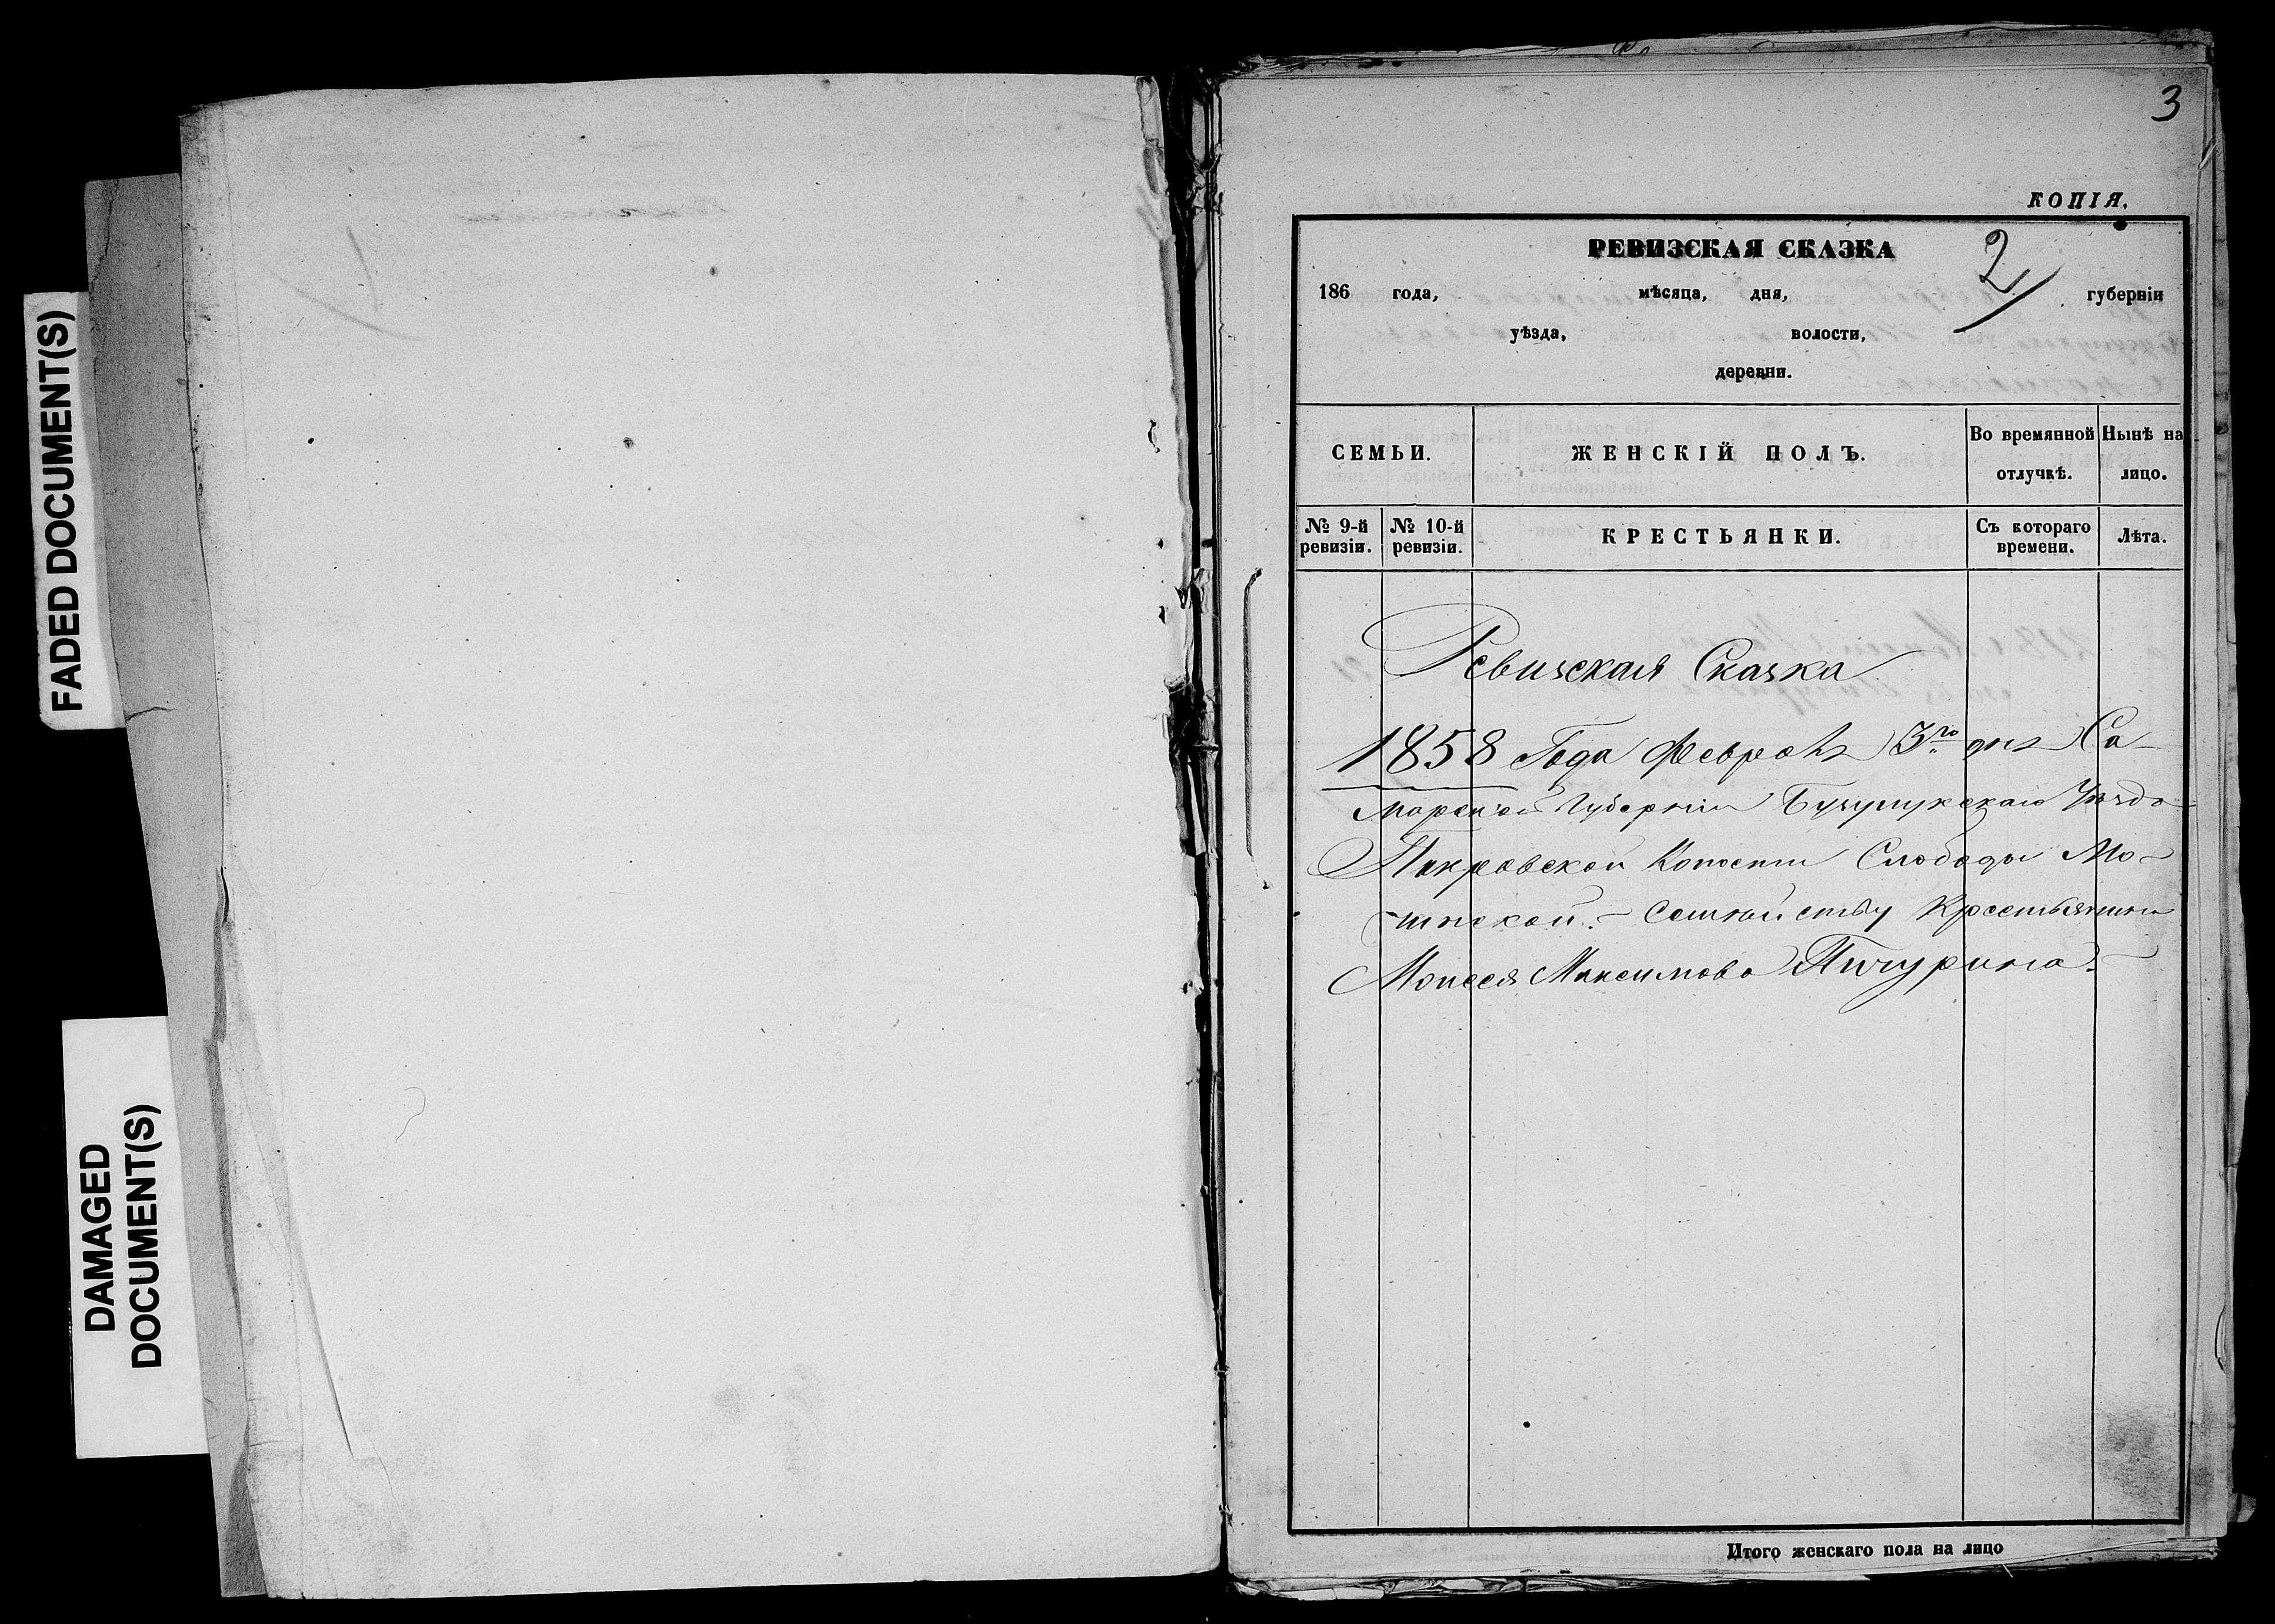 FADED DOCUMENT(S)
DAMAGED
DOCUMENT(S)
3
КОПІЯ.
РЕВИЗСКАЯ СКАЗКА
2
186 года, мѣсяца, дня, губерніи
уѣзда, волости,
деревни.
СЕМЬИ.
ЖЕНСКІЙ ПОЛЪ.
Во времянной
отлучкѣ.
Нынѣ на
лицо.
№ 9-й
ревизіи.
№ 10-й
ревизіи.
КРЕСТЬЯНКИ.
Съ котораго
времени.
Лѣта.
Ревизская Сказка
1858 Года Февраля 3го дня Са-
марской Губерніи Бузулукскаго Уѣзда
Покровской Слободы Мо-
шнской. - Семейству Крестьянина
Моисея Максимова Пичурина. -
Итого женскаго пола на лицо